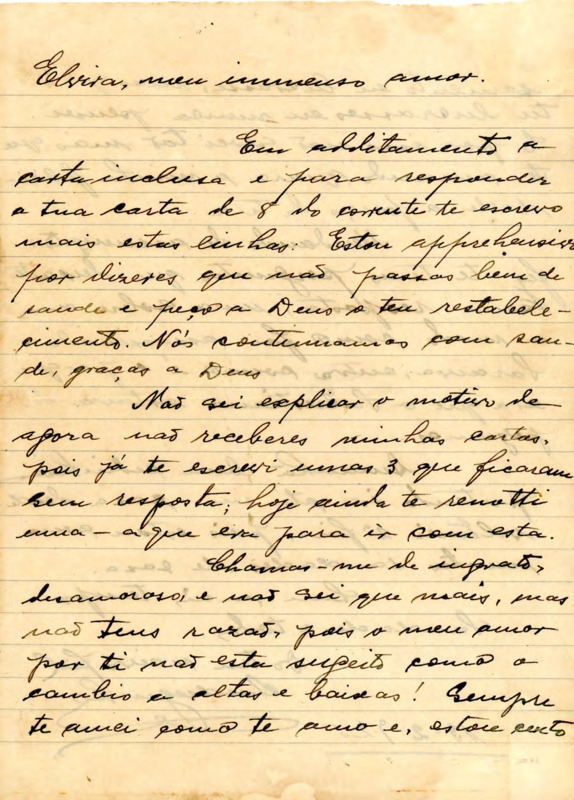 Elvira, meu immenso amor.
Em additamento a
carta inclusa e para responder
a tua carta de 8 do corrente te escrevo
mais estas linhas. Estou apprehensivo
por dizeres que não passas bem de
saude e peço a Deus o teu restabele-
cimento. Nós continuamos com sau-
de, graças a Deus
Não sei explicar o motivo de
agora não receberes minhas cartas,
pois já te escrevi umas 3 que ficaram
sem resposta; hoje ainda te remetti
uma - a que era para ir com esta.
Chamas-me de ingrato,
desamoroso, e não sei que mais, mas
não tens razão, pois o meu amor
por ti não esta sugeito como o
cambio a altas e baixas! Sempre
te amei como te amo e, estou certo